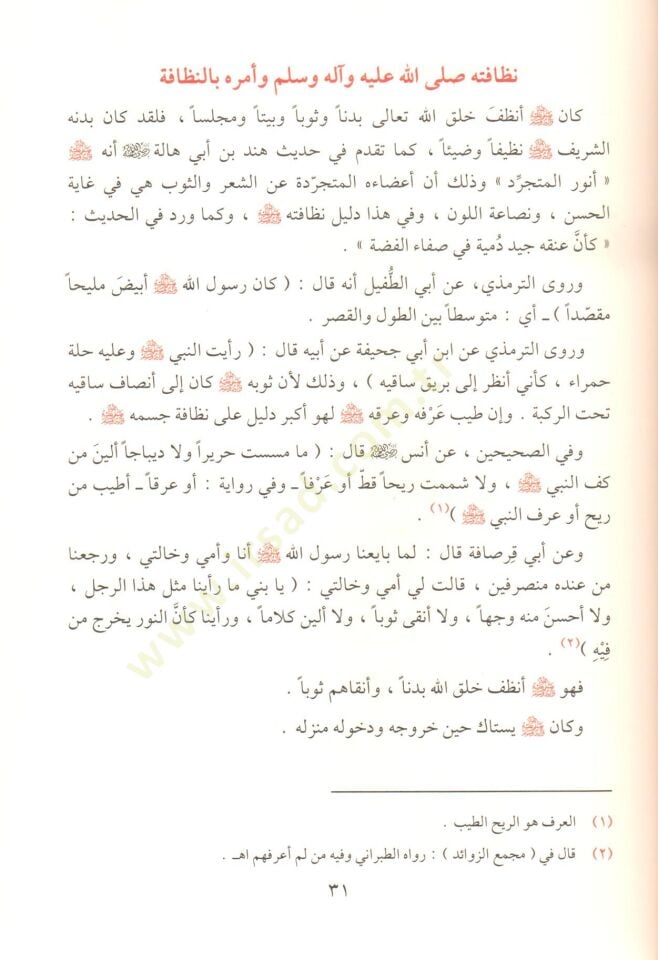 نظافته صلى الله عليه وآله وسلم وأمره بالنظافة
كان ﷺ أنظفَ خلق الله تعالى بدناً وثوباً وبيتاً ومجلساً ، فلقد كان بدنه
الشريف ﷺ نظيفاً وضيئاً ، كما تقدم في حديث هند بن أبي هالة رضي الله عنه أنه ﷺ
« أنور المتجرِّد » وذلك أن أعضاءه المتجرّدة عن الشعر والثوب هي في غاية
الحسن ، ونصاعة اللون ، وفي هذا دليل نظافته ﷺ ، وكما ورد في الحديث :
« كأنَّ عنقه جيد دُمية في صفاء الفضة » .
وروى الترمذي، عن أبي الطُّفيل أنه قال : ( كان رسول الله ﷺ أبيضَ مليحاً
مقصّداً ) ـ أي : متوسطاً بين الطول والقصر .
وروى الترمذي عن ابن أبي جحيفة عن أبيه قال : ( رأيت النبي ﷺ وعليه حلة
حمراء ، كأني أنظر إلى بريق ساقيه ) ، وذلك لأن ثوبه ﷺ كان إلى أنصاف ساقيه
تحت الركبة . وإن طيب عَرْفه وعرقه ﷺ لهو أكبر دليل على نظافة جسمه ﷺ .
وفي الصحيحين ، عن أنس رضي الله عنه قال : ( ما مسست حريراً ولا ديباجاً ألينَ من
كف النبي ﷺ ، ولا شممت ريحاً قط أو عَرْفاً ـ وفي رواية : أو عرقاً ـ أطيب من
ريح أو عرف النبي ﷺ )(١) .
وعن أبي قِرصافة قال : لما بايعنا رسول الله ﷺ أنا وأمي وخالتي ، ورجعنا
من عنده منصرفين ، قالت لي أمي وخالتي : ( يا بني ما رأينا مثل هذا الرجل ،
ولا أحسنَ منه وجهاً ، ولا أنقى ثوباً ، ولا ألين كلاماً ، ورأينا كأنَّ النور يخرج من
فِيْهِ )(٢) .
فهو ﷺ أنظف خلق الله بدناً ، وأنقاهم ثوباً .
وكان ﷺ يستاك حين خروجه ودخوله منزله .
(١) العرف هو الريح الطيب .
(٢) قال في ( مجمع الزوائد ) : رواه الطبراني وفيه من لم أعرفهم اهـ .
٣١
www.irsad.com.tr